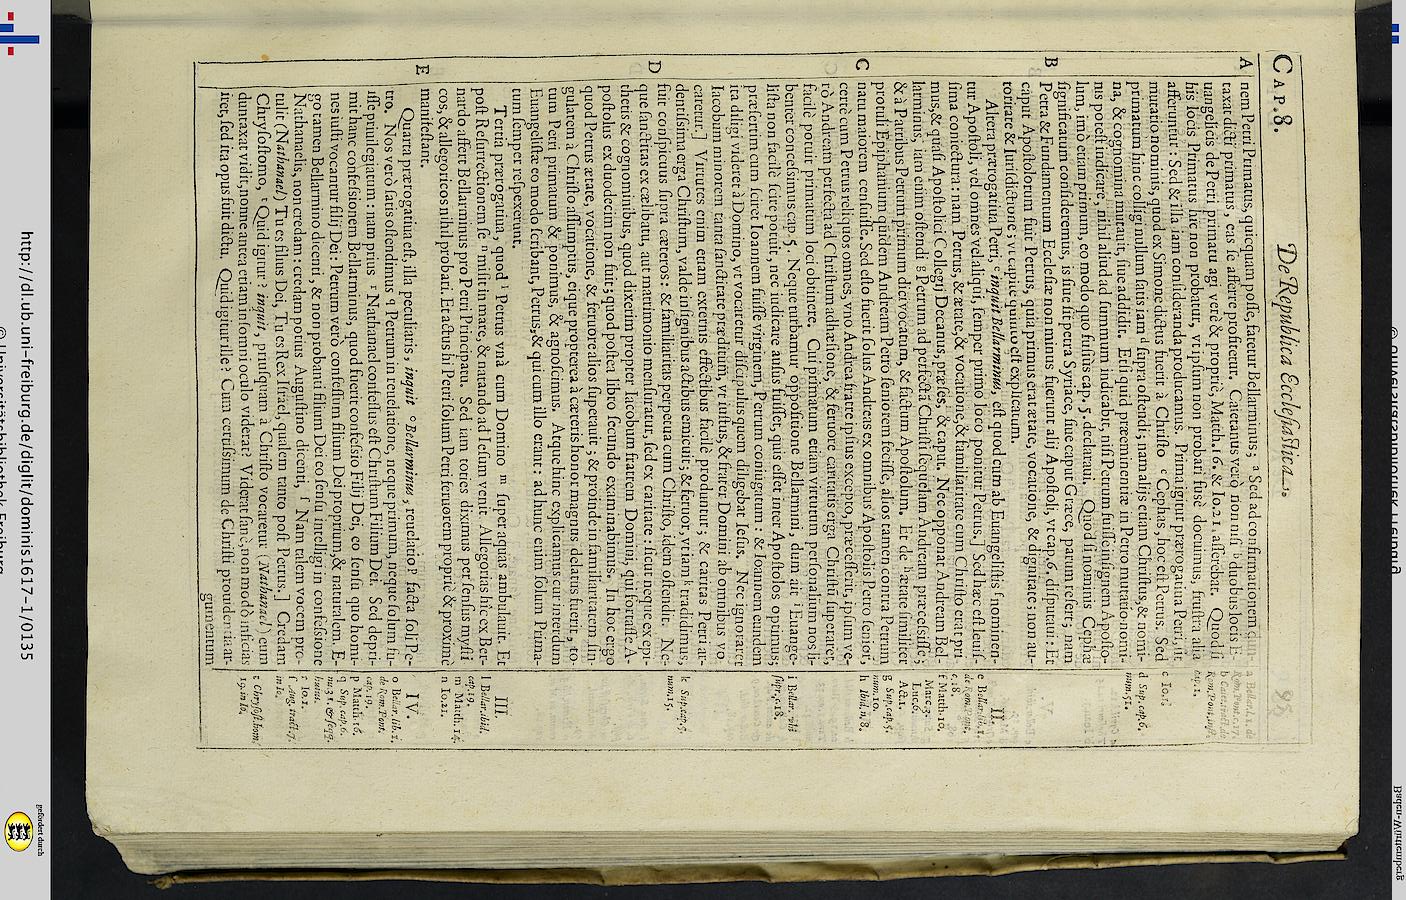 CAP. 8.
De Republica Ecclesiastica.
95
A
nem Petri Primatus, quicquam posse, fatetur Bellarminus; ᵃ Sed ad confirmationem
taxat dicti primatus, eas se afferre profitetur. Caietanus verò non nisi ᵇ duobus locis E-
uangelicis de Petri primatu agi verè & propriè, Match. 16. & Io. 21. asserebat. Quod si
his locis Primatus hic non probatur, vt ipsum non probari fusè documus, frustra alia
afferuntur: Sed & illa iam consideranda producamus. Prima igitur prærogatiua Petri, sit
mutatio nominis, quod ex Simone dictus fuerit à Christo ᶜ Cephas, hoc est Petrus. Sed
primatum hinc colligi nullum satis iam ᵈ supra ostendi; nam alijs etiam Christus, & nomi-
na, & cognomina mutauit, siue addidit. Etsi quid præeminentiæ in Petro mutatio nomi-
nis potest indicare, nihil aliud ad summum indicabit, nisi Petrum fuisse insignem Aposto-
lum, imò etiam primum, eo modo quo fusius cap. 5. declaraui. Quod si nominis Cephæ
significatum consideremus, is siue sit petra Syriacè, siue caput Græcè, parum refert; nam
B
Petra & Fundamentum Ecclesiæ non minus fuerunt alij Apostoli, vt cap. 6. disputaui: Et
caput Apostolorum fuit Petrus, quia primus erat ætate, vocatione, & dignitate; non au-
toritate & Iurisdictione; vt capite quinto est explicatum.
Altera prærogatiua Petri, ᵉ inquit Bellarminus, est quod cum ab Euangelistis ᶠ nominen-
tur Apostoli, vel omnes vel aliqui, semper primo loco ponitur Petrus.] Sed hæc est leuis-
sima coniectura: nam Petrus, & ætate, & vocatione, & familiaritate cum Christo erat pri-
mus, & quasi Apostolici Collegij Decanus, præses, & caput. Nec opponat Andream Bel-
larminus, iam enim ostendi ᵍ Petrum ad perfectā Christi sequelam Andream præcessisse;
& à Patribus Petrum primum dici vocatum, & factum Apostolum. Et de ʰ ætate similiter
protuli Epiphanium quidem Andream Petro seniorem fecisse, alios tamen contra Petrum
C
natu maiorem censuisse. Sed esto fuerit solus Andreas ex omnibus Apostolis Petro senior;
certè cum Petrus reliquos omnes, vno Andrea fratre ipsius excepto, præcesserit, ipsum ve-
rò Andream perfecta ad Christum adhæsione, & feruore caritatis erga Christū superaret,
facilè potuit primatum loci obtinere. Cui primatum etiam virtutum personalium nos li-
benter concessimus cap. 5. Neque turbamur oppositione Bellarmini, dum ait ⁱ Euange-
lista non facilè scire potuit, nec iudicare ausus fuisset, quis esset inter Apostolos optimus;
præsertim cum sciret Ioannem fuisse virginem, Petrum coniugatum: & Ioannem eundem
ita diligi videret à Domino, vt vocaretur discipulus quem diligebat Iesus. Nec ignoraret
Iacobum minorem tanta sanctitate præditum, vt iustus, & frater Domini ab omnibus vo-
caretur.] Virtutes enim etiam externis effectibus facilè produntur; & caritas Petri ar-
dentissima erga Christum, valde insignibus actibus emicuit; & feruor, vt iam ᵏ tradidimus,
D
fuit conspicuus supra cæteros: & familiaritas perpetua cum Christo, idem ostendit. Ne-
que sanctitas ex cælibatu, aut matrimonio mensuratur, sed ex caritate: sicut neque ex epi-
thetis & cognominibus, quod dixerim propter Iacobum fratrem Domini, qui fortasse A-
postolus ex duodecim non fuit; quod postea libro secundo examinabimus. In hoc ergo
quod Petrus ætate, vocatione, & feruore alios superauit; & proinde in familiaritatem sin-
gularem à Christo assumptus, eique propterea à cæteris honor magnus delatus fuerit, to-
tum Petri primatum & ponimus, & agnoscimus. Atque hinc explicamus cur interdum
Euangelistæ eo modo scribant, Petrus, & qui cum illo erant: ad hunc enim solum Prima-
tum semper respexerunt.
Tertia prærogatiua, quod ˡ Petrus vnà cum Domino ᵐ super aquas ambulauit. Et
post Resurrectionem se ⁿ misit in mare, & natando ad Iesum venit. Allegorias hîc ex Ber-
nardo affert Bellarminus pro Petri Principatu. Sed iam toties diximus per sensus mysti-
cos, & allegoricos nihil probari. Et actus hi Petri solum Petri feruorem propriè & proximè
E
manifestant.
Quarta prærogatiua est, illa peculiaris, inquit ᵒ Bellarminus, reuelatio ᵖ facta soli Pe-
tro. Nos verò satis ostendimus q Petrum in reuelatione, neque primum, neque solum fu-
isse priuilegiatum: nam prius ʳ Nathanael confessus est Christum Filium Dei. Sed depri-
mit hanc confessionem Bellarminus, quod fuerit confessio Filij Dei, eo sensu quo homi-
nes iusti vocantur filij Dei: Petrum verò confessum filium Dei proprium, & naturalem. E-
go tamen Bellarmino dicenti, & non probanti filium Dei eo sensu intelligi in confessione
Nathanaelis, non credam: credam potius Augustino dicenti, ᶠ Nam talem vocem pro-
tulit (Nathanael) Tu es filius Dei, Tu es Rex Israel, qualem tanto post Petrus.] Credam
Chrysostomo, ᵗ Quid igitur? inquit, priusquam à Christo vocareris Nathanael) eum
duntaxat vidit, nonne antea etiam insomni oculo viderat? Viderat sanè, non modo inficias
ires, sed ita opus fuit dictu. Quid igitur ille? Cum certissimum de Christi prouidentia ar-
gumentum
a Bellar. l. 1. de
Rom. Pont. c. 17.
b Caiet. tract. de
Rom. Pont. inst.
cap. 1.
c Io. 1.
d Sup. cap. 6.
num. 51.
II.
e Bellar. lib. 1.
de Rom. Pont.
c. 18.
f Matth. 10.
Marc. 3.
Luc. 6.
Act. 1.
g Sup. cap. 5.
num. 10.
h Ibid. n. 8.
i Bellar. vbi
supr. c. 18.
k Sup. cap. 5.
num. 15.
III.
l Bellar. ibid.
cap. 19.
m Matth. 14.
n Io. 21.
IV.
o Bellar. lib. 1.
de Rom. Pont.
cap. 19.
p Matth. 16.
q Sup. cap. 6.
nu. 31. & seqq.
huius.
r Io. 1.
f Aug. tract. 7.
in Io.
t Chrysost. hom.
19. in Io.
http://dl.ub.uni-freiburg.de/diglit/dominis1617-1/0135
© Universitätsbibliothek Freiburg
gefördert durch